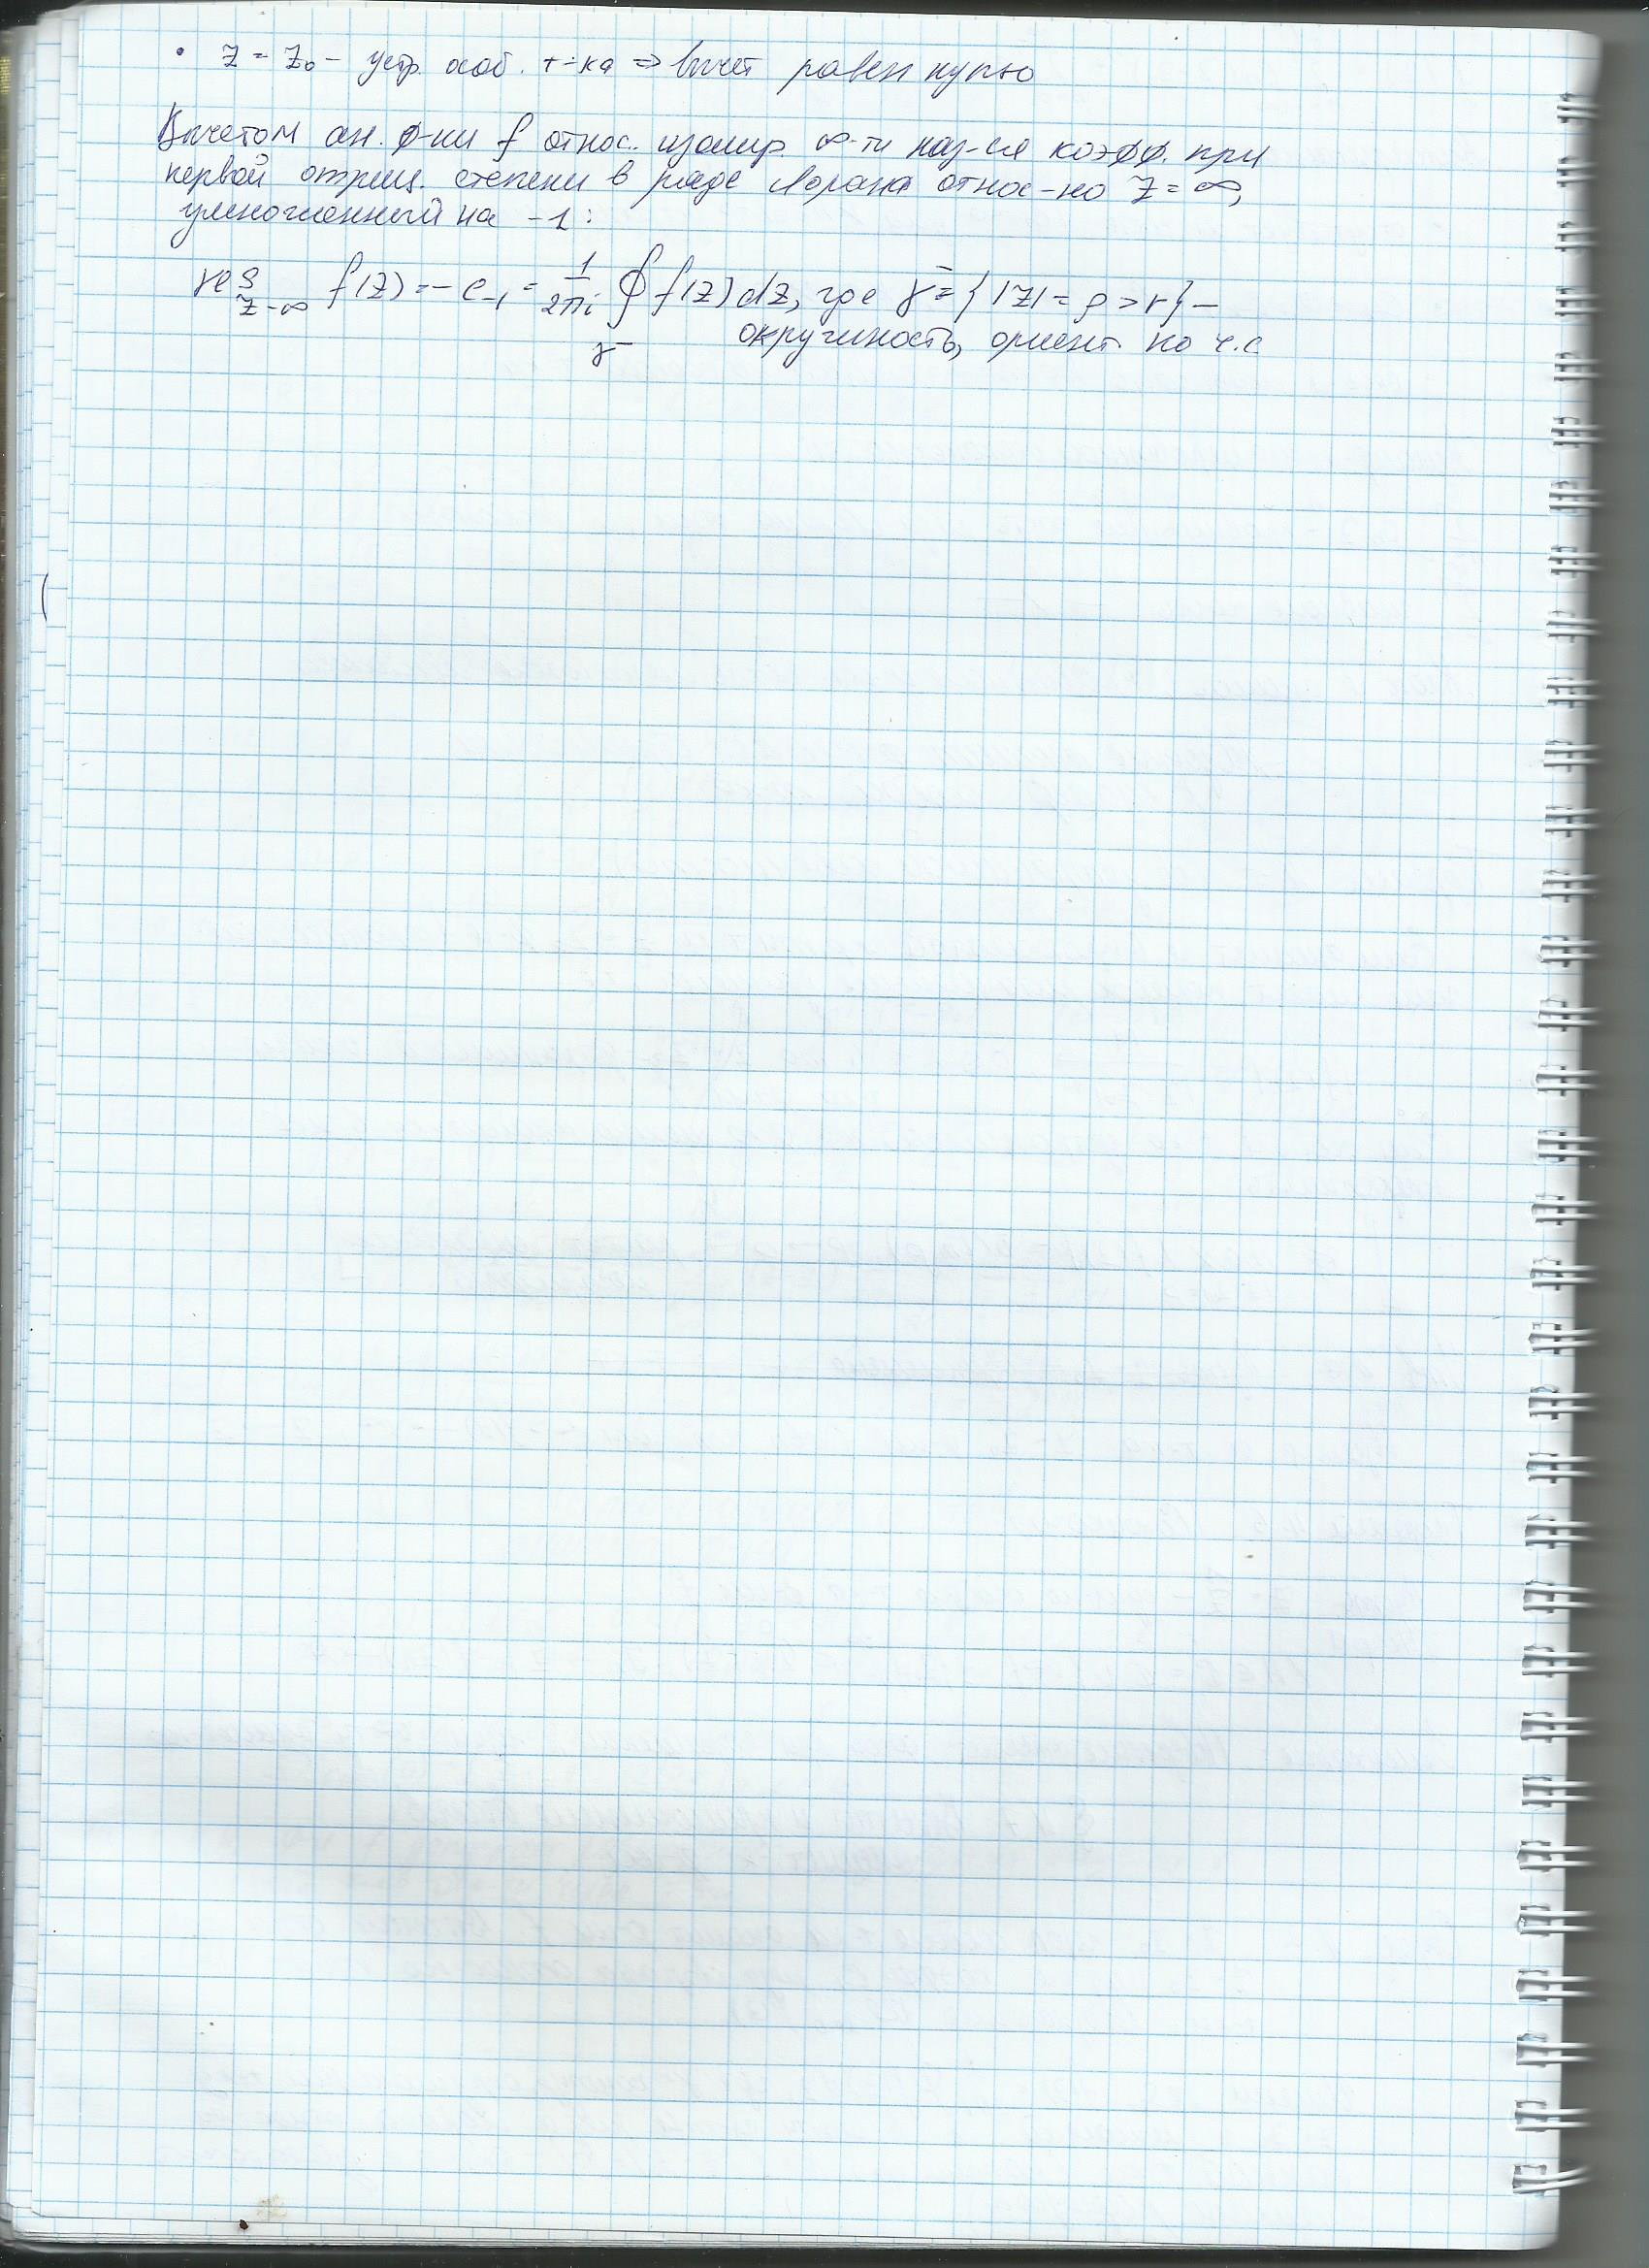 • z = z₀ – устр. особ. т-ка ⇒ вычет равен нулю
Вычетом ан. ф-ии f относ. изолир. ∞-ти наз-ся коэфф. при
первой отриц. степени в ряде Лорана относ-но z = ∞,
умноженный на -1:
res f(z) = – c₋₁ = 1/2πi ∮ f(z) dz, где γ⁻ = { |z| = ρ > r } –
z=∞ γ⁻ окружность, ориент. по ч.с